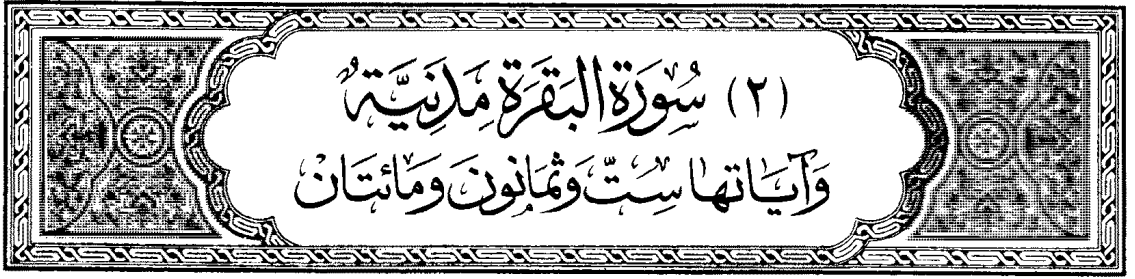 (٢) سُورَة البَقَرَة مَدَنِيَّةٌ
وَآيَاتهَا سِتّ وَثمَانُونَ وَمائتَانْ